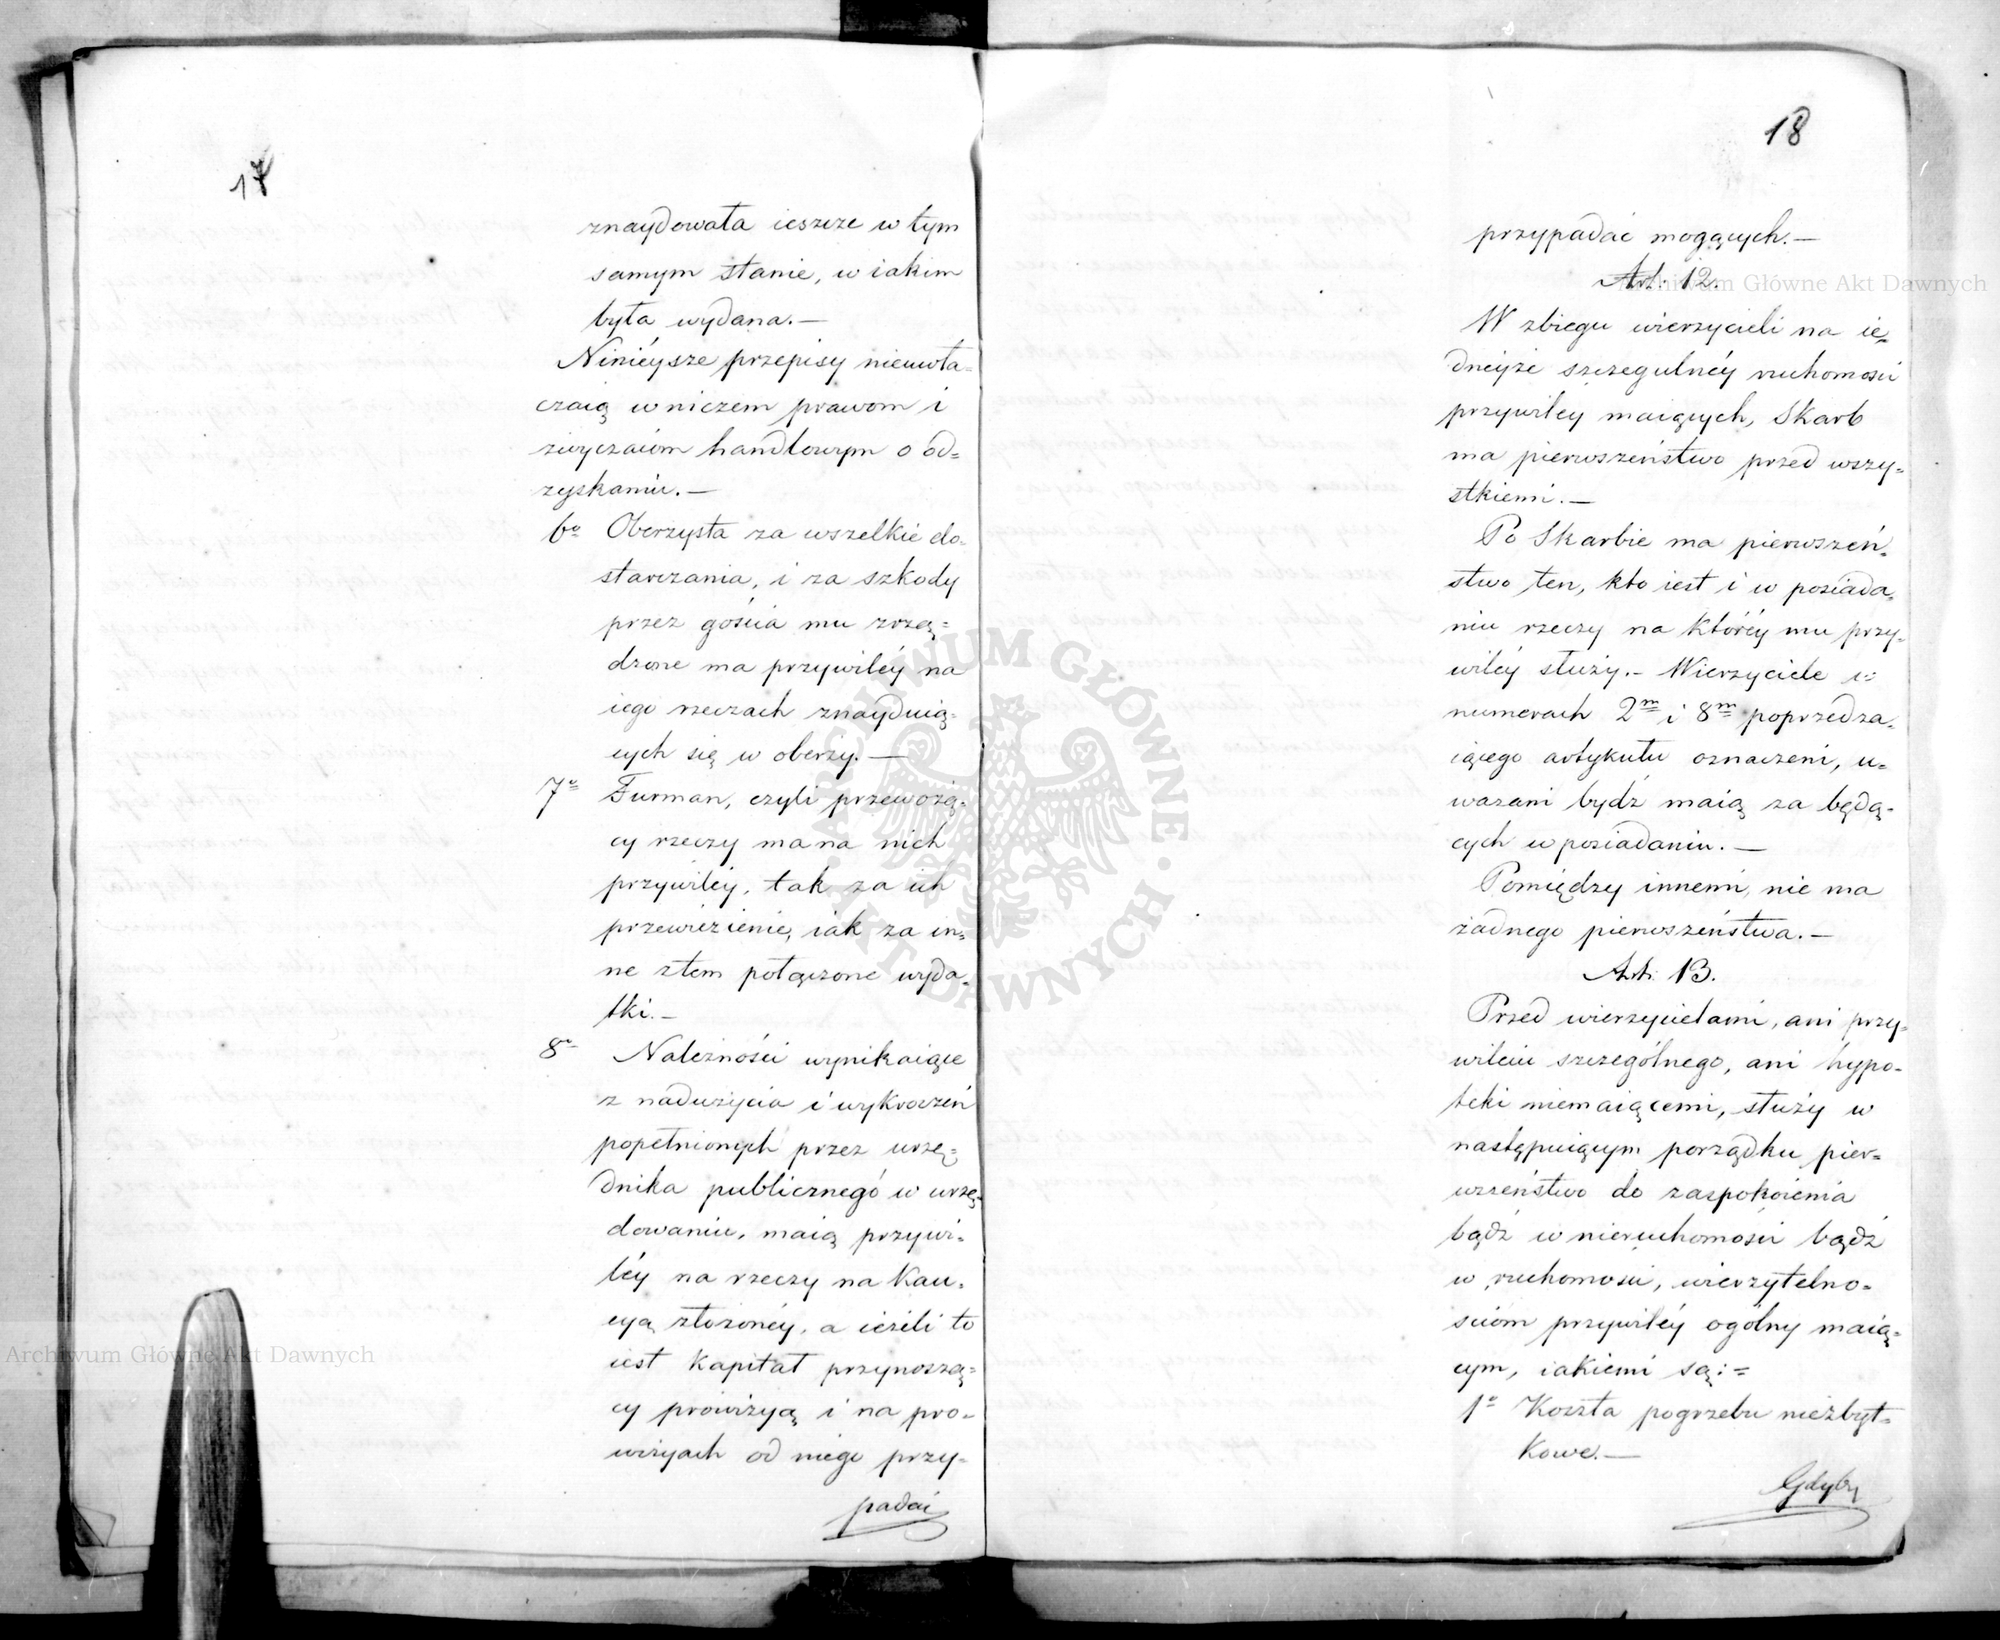 17
znaydowała ieszcze w tym
samym stanie, w iakim
była wydana.—
Ninieysze przepisy nieuwła=
czaią w niczem prawom i
zwyczaióm handlowym o od=
zyskaniu.—
6o Oberzysta za wszelkie do=
starczania, i za szkody
przez gościa mu zrzą=
dzone ma przywiléy na
iego rzeczach znayduią=
cych się w oberży.—
7o Furman, czyli przewożą=
cy rzeczy ma na nich
przywiléy, tak za ich
przewiezienie, iak za in=
ne z tem połączone wyda=
tki.—
8o Należności wynikaiące
z nadużycia i wykroczeń
popełnionych przez urzę=
dnika publicznego w urzę=
dowaniu, maią przywi=
léy na rzeczy na Kau=
cyą złożonéy, a ieżeli to
iest Kapitał przynoszą=
cy prowizyą i na pro=
wizyach od niego przy=
padać
18
przypadać mogących.—
Art. 12.
W zbiegu wierzycieli na ie=
dnéyże szczegulnéy ruchomości
przywiley maiących, Skarb
ma pierwszeństwo przed wszy=
stkiemi.—
Po Skarbie ma pierwszeń=
stwo ten, kto iest i w posiada=
niu rzeczy na któréy mu przy=
wiléy służy.— Wierzyciele w
numerach 2m i 8m poprzedza=
iącego artykułu oznaczeni, u=
ważani bydź maią za będą=
cych w posiadaniu.—
Pomiędzy innemi, nie ma
żadnego pierwszeństwa.—
Art. 13.
Przed wierzycielami, ani przy=
wileiu szczególnego, ani hypo=
teki niemaiącemi, służy w
następuiącym porządku pier=
wszeństwo do zaspokoienia
bądź w nieruchomości bądź
w ruchomości, wierzytelno=
ściom przywiléy ogólny maią=
cym, iakiemi są:=
1o Koszta pogrzebu niezbyt=
Kowe.—
Gdyby
Archiwum Główne Akt Dawnych
Archiwum Główne Akt Dawnych
ARCHIWUM GŁÓWNE · AKT DAWNYCH ·